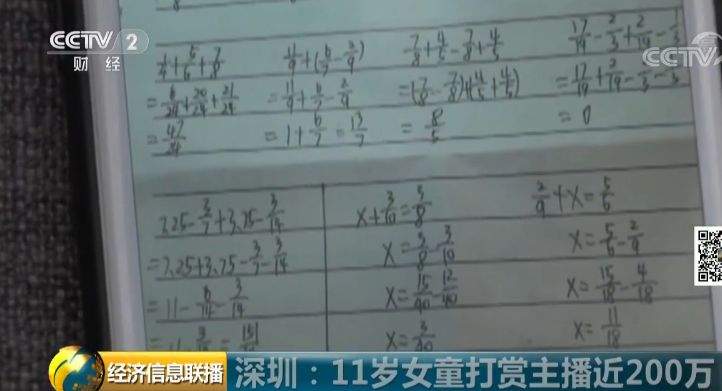 CCTV 2
财经
CCTV
1/4+5/6+7/8
=6/24+20/24+21/24
=47/24
11/9+(6/7-2/9)
=11/9+6/7-2/9
=1+6/7=13/7
7/8+4/5-7/8+4/5
=(7/8-7/8)+(4/5+4/5)
=8/5
17/19-2/3+2/19-1/3
=17/19+2/19-2/3-1/3
=0
7.25-3/7+3.75-3/14
=7.25+3.75-3/7-3/14
=11-6/14-3/14
x+3/10=5/8
x=5/8-3/10
x=15/40-12/40
x=3/40
2/9+x=5/6
x=5/6-2/9
x=15/18-4/18
x=11/18
经济信息联播
深圳：11岁女童打赏主播近200万